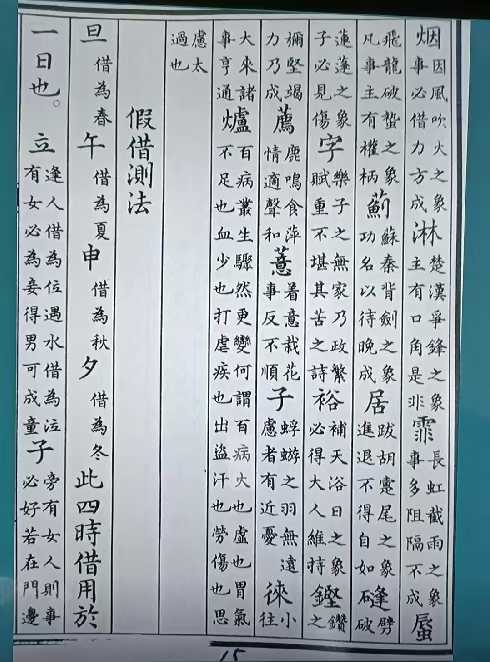 烟因風吹火之象事必借力方成淋楚漢爭鋒之象主有口角是非霏長虹截雨之象事多阻隔不成蜃
飛龍破蟄之象凡事主有權柄薊蘇秦背劍之象功名以待晚成居跋胡疐尾之象進退不得自如縫劈破
蓮蓬之象子必見傷字樂子之無家乃政繁賦重不堪其苦之詩裕補天浴日之象必得大人維持鏗鑽之
彌堅竭力乃成薦鹿鳴食萍情適聲和薏着意栽花事反不順子蜉蝣之羽無遠慮者有近憂徠小往
大來諸事亨通爐百病叢生驟然更變何謂百病火也盧也胃氣不足也血少也打虐疾也出盜汗也勞傷也思
慮太過也
假借測法
旦借為春午借為夏申借為秋夕借為冬此四時借用於
一日也。立逢人借為位遇水借為泣有女必為妾得男可成童子旁有女人則事必好若在門邊
15